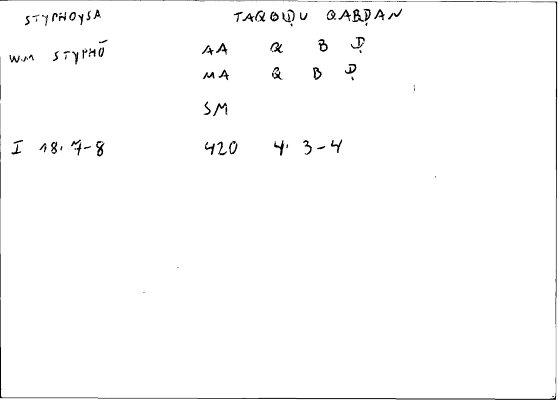 STYPHOYSA TAQBIḌU QABḌAN
WM STYPHŌ AA Q B Ḍ
MA Q B Ḍ
SM
I 18. 7-8 420 4. 3-4